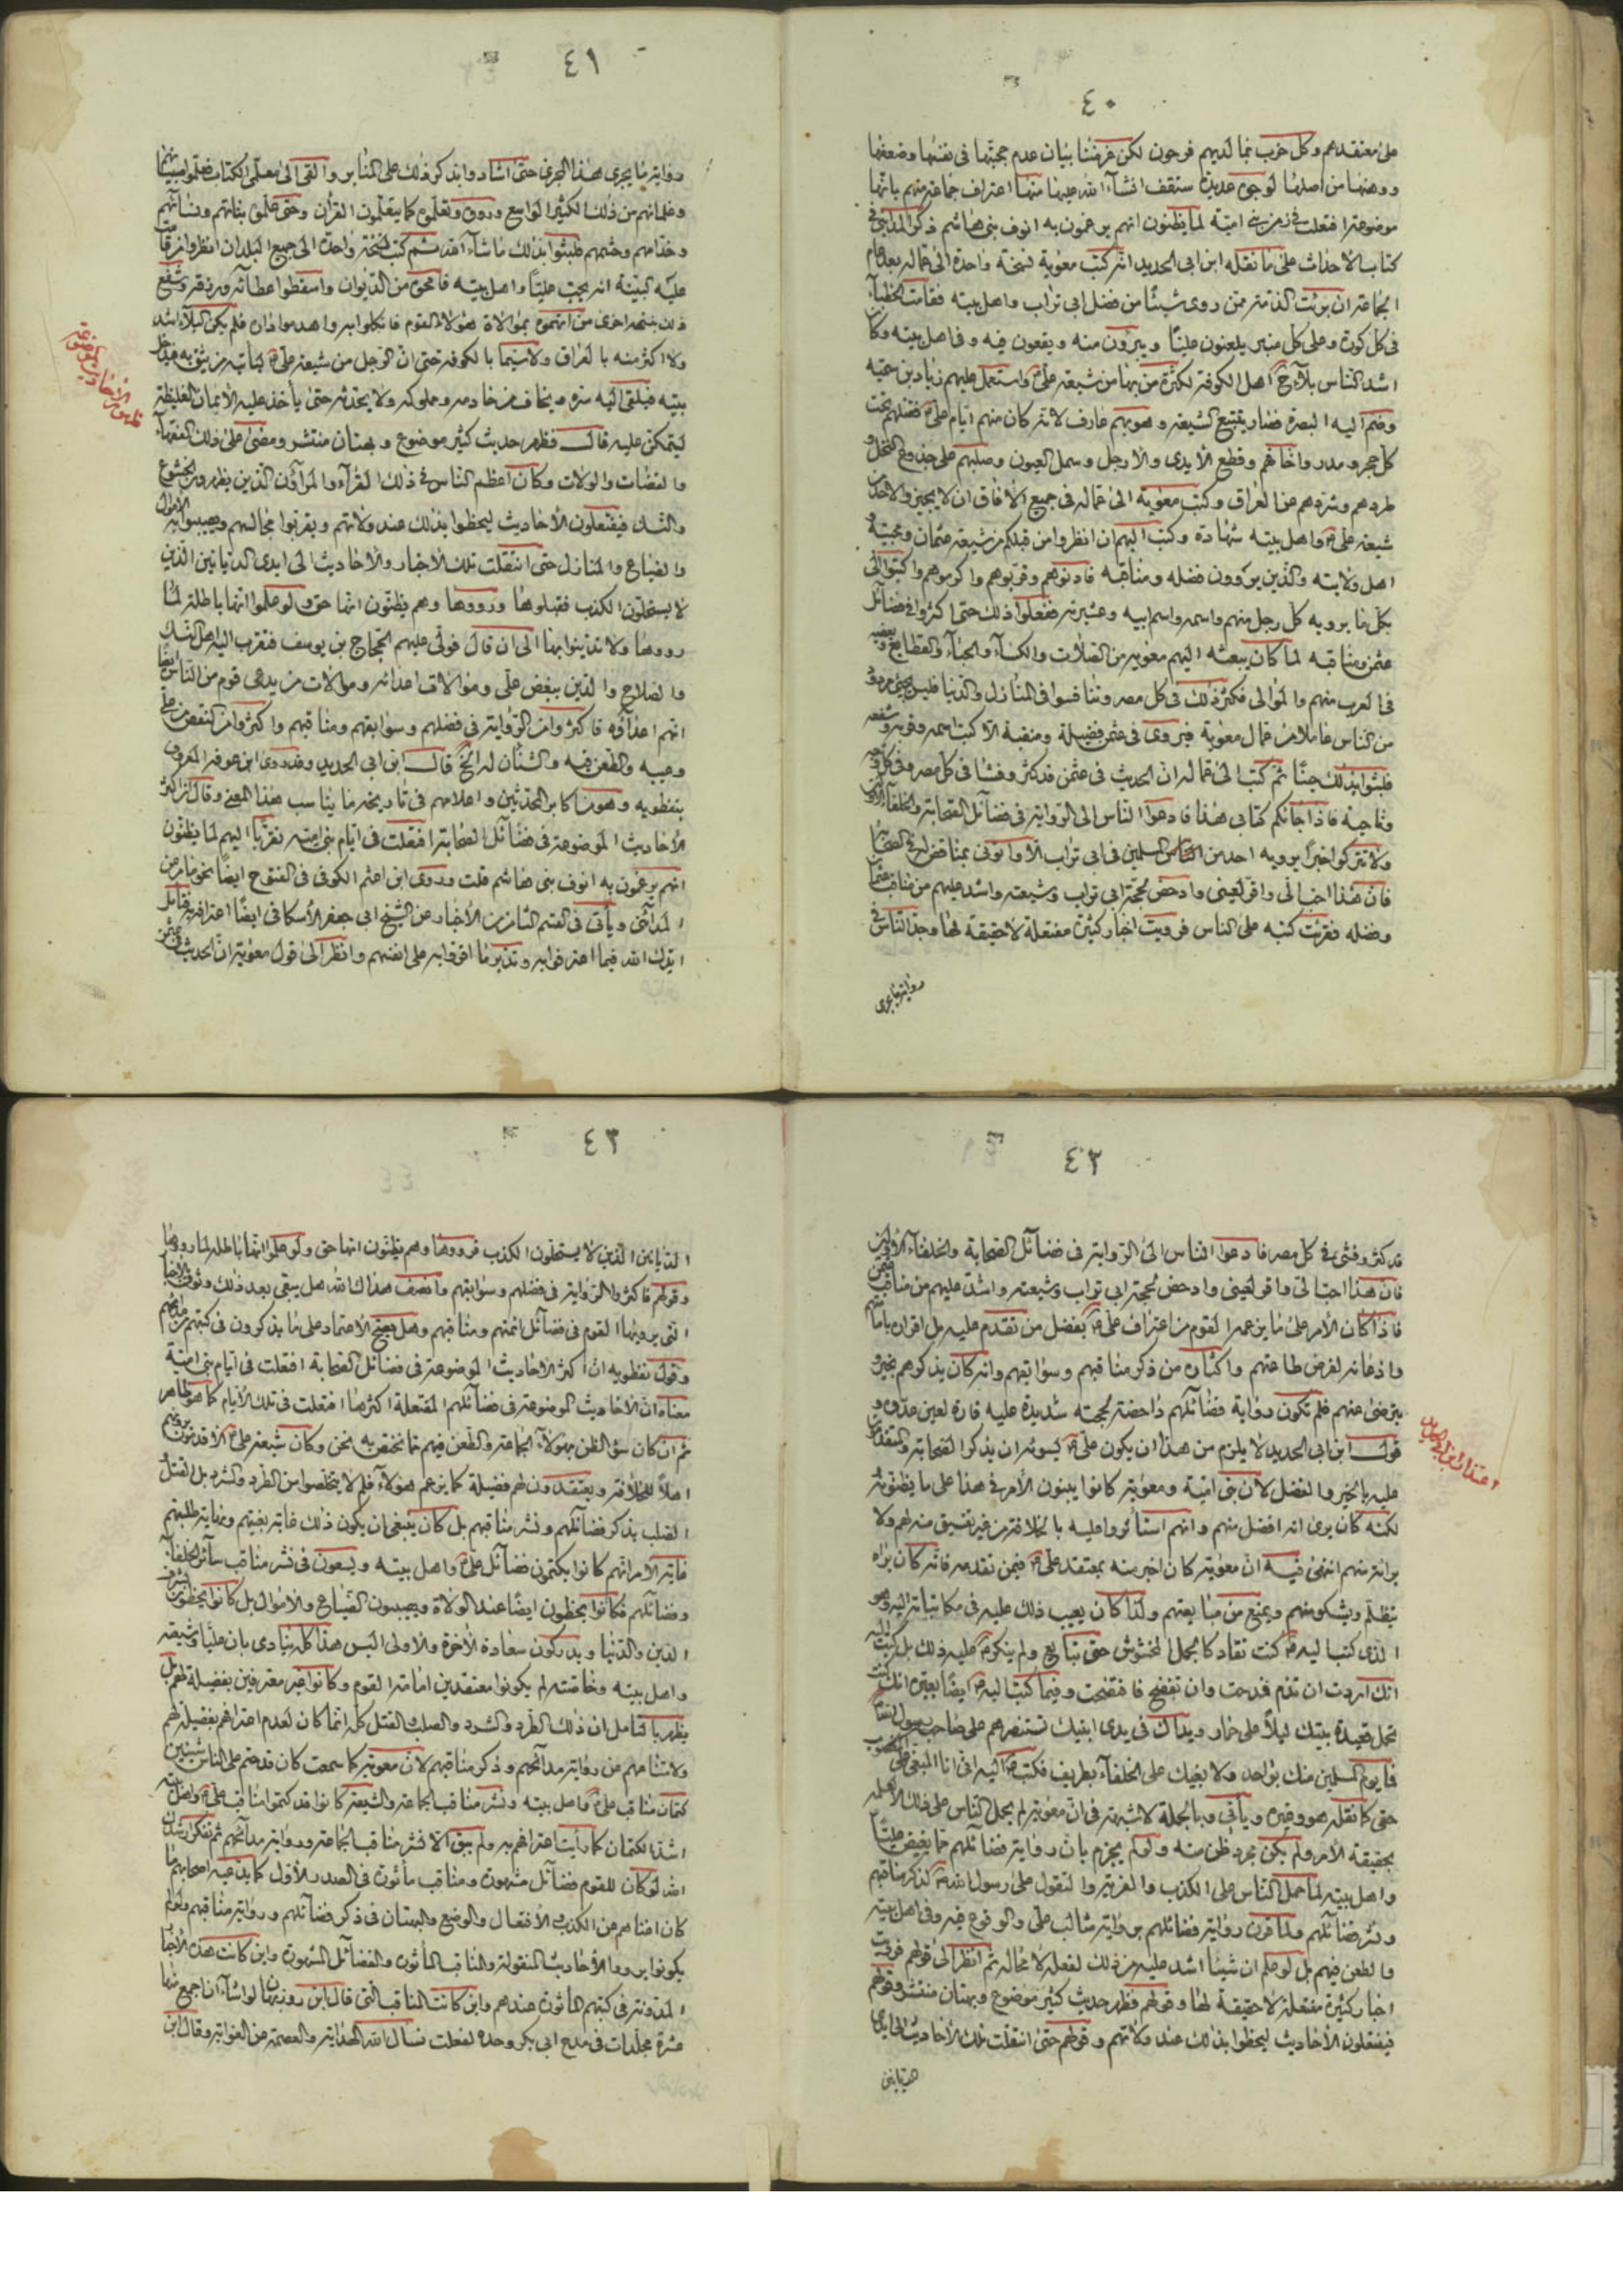 ٤٠
على معتقدهم وكل حزب بما لديهم فرحون لكن غرضنا بيان عدم حجيتها فى نفسها وضعفها
ووهنها من اصلها لوجوه عديدة ستقف انشآء الله عليها منها اعتراف جماعة منهم بانها
موضوعة افتعلت فى زمن بنى امية لما يظنون انهم يرغمون به انوف بنى هاشم ذكر المداينى فى
كتاب الاحداث على ما نقله ابن ابى الحديد انه كتب معوية نسخة واحدة الى عماله بعد عام
الجماعة ان برئت الذمة ممن روى شيئًا من فضل ابى تراب واهل بيته فقامت الخطبآء
فى كل كورة وعلى كل منبر يلعنون عليًا ويبرؤن منه ويقعون فيه وفى اهل بيته وكان
اشد الناس بلآء ح اهل الكوفة لكثرة من بها من شيعة على ع واستعمل عليهم زياد بن سميه
وضم اليه البصرة فصار يتتبع الشيعة وهو بهم عارف لانه كان منهم ايام على ع فقتلهم تحت
كل حجر ومدر واخافهم وقطع الايدى والارجل وسمل العيون وصلبهم على جذوع النخل و
طردهم وشردهم عن العراق وكتب معوية الى عماله فى جميع الافاق ان لا يجيزوا لاحد من
شيعة على ع واهل بيته شهادة وكتب اليهم ان انظروا من قبلكم من شيعة عثمان ومحبيه و
اهل ولايته والذين يروون فضله ومناقبه فادنوهم وقربوهم واكرموهم واكتبوا الى
بكل ما يرويه كل رجل منهم واسمه واسم ابيه وعشيرته ففعلوا ذلك حتى اكثروا فى فضائل
عثمن ومناقبه لما كان يبعثه اليهم معوية من الصلات والكسآء والحبآء والقطايع ويفيضه
فى العرب منهم والموالى فكثر ذلك فى كل مصر وتنافسوا فى المنازل والدنيا فليس يجئ مردود
من الناس عاملا من عمال معوية فيروى فى عثمن فضيلة ومنقبة الا كتب اسمه وقربه وشفعه
فلبثوا بذلك حينًا ثم كتب الى عماله ان الحديث فى عثمن قد كثر وفشا فى كل مصر وفى كل وجه
وناحية فاذا جائكم كتابى هذا فادعوا الناس الى الرواية فى فضائل الصحابة والخلفآء الاولين
ولا تتركوا خبرًا يرويه احد من المسلمين فى ابى تراب الا واتونى بمناقض له فى الصحابة
فان هذا احب الى واقر لعينى وادحض لحجة ابى تراب وشيعته واشد عليهم من مناقب عثمان
وفضله فقرئت كتبه على الناس فرويت اخبار كثيرة مفتعلة لا حقيقة لها وجد الناس فى
رواية ما يجرى
٤١
رواية ما يجرى هذا المجرى حتى اشادوا بذكر ذلك على المنابر والقى الى معلمى الكتاب فعلموا صبيانهم
وغلمانهم من ذلك الكثير الواسع ورووه وتعلموه كما يتعلمون القرآن وحتى علموه بناتهم ونسائهم
وخدامهم وحشمهم فلبثوا بذلك ما شآء الله ثم كتب نسخة واحدة الى جميع البلدان انظروا من قامت
عليه البينة انه يحب عليًا واهل بيته فامحوه من الديوان واسقطوا عطائه ورزقه وشفع
ذلك بنسخة اخرى من اتهمتموه بموالاة هؤلاء القوم فانكلوا به واهدموا داره فلم يكن البلآء اشد
ولا اكثر منه بالعراق ولا سيما بالكوفة حتى ان الرجل من شيعة على ع ليأتيه من يثق به فيدخل
بيته فيلقى اليه سره ويخاف من خادمه ومملوكه ولا يحدثه حتى يأخذ عليه الايمان الغليظة
ليتمكن عليه قال فظهر حديث كثير موضوع وبهتان منتشر ومضى على ذلك الفقهآء
والقضات والولات وكان اعظم الناس فى ذلك القرآء والمرآؤن الذين يظهرون الخشوع
والنسك فيفتعلون الاحاديث ليحظوا بذلك عند ولاتهم ويقربوا مجالسهم ويصيبوا به الاموال
والضياع والمنازل حتى انتقلت تلك الاخبار والاحاديث الى ايدى الديانين الذين
لا يستحلون الكذب فقبلوها ورووها وهم يظنون انها حق ولو علموا انها باطلة لما
رووها ولا تدينوا بها الى ان قال فولى عليهم الحجاج بن يوسف فتقرب اليه اهل النسك
والصلاح والذين ببغض على وموالات اعدائه وموالات من يدعى قوم من الناس ايضا
انهم اعداؤه فاكثروا من الرواية فى فضلهم وسوابقهم ومناقبهم واكثروا من النقص من على
وعيبه والطعن فيه والشنان له الخ قال ابن ابى الحديد وقد روى ابن عرفة المعروف
بنفطويه وهو من اكابر المحدثين واعلامهم فى تاريخه ما يناسب هذا المعنى وقال ان اكثر
الاحاديث الموضوعة فى فضائل الصحابة افتعلت فى ايام بنى امية تقربًا اليهم لما يظنون
انهم يرغمون به انوف بنى هاشم قلت وروى ابن اعثم الكوفى فى الفتوح ايضًا نحو ما مر عن
المداينى ويأتى فى القسم الثامن من الاخبار عن الشيخ ابى جعفر الاسكافى ايضًا اعترافه به فتأمل
ايدك الله فيما اعترفوا به وتدبر ما اقروا به على انفسهم وانظر الى قول معوية ان الحديث فى عثمن
٤٢
قد كثر وفشى فى كل مصر فادعوا الناس الى الرواية فى فضآئل الصحابة والخلفآء الاولين
فان هذا احب الى واقر لعينى وادحض لحجة ابى تراب وشيعته واشد عليهم من مناقب عثمن
فاذا كان الامر على ما يزعمه القوم من اعتراف على ع بفضل من تقدم عليه بل اقراره بامامتهم
واذعانه لفرض طاعتهم واكثاره من ذكر مناقبهم وسوابقهم وانه كان يذكرهم بخير و
يترضى عنهم فلم تكون رواية فضائلهم داحضة لحجته شديدة عليه قارة لعين عدوه و
قول ابن ابى الحديد لا يلزم من هذا ان يكون على ع يسوئه ان يذكر الصحابة والمتقدمين
عليه بالخير والفضل لان بنى امية ومعوية كانوا يبنون الامر فى هذا على ما يظنونه
لكنه كان يرى انه افضل منهم وانهم استأثروا عليه بالخلافة من غير تفسيق منه لهم ولا
برائة منهم انتهى فيه ان معوية كان اخبر منه بمعتقد على ع فيمن تقدمه فانه كان يراه
يتظلم ويشكو منهم ويمتنع من مبايعتهم ولذا كان يعيب ذلك عليه فى مكاتباته اليه وهو
الذى كتب اليه ع كنت تقاد كالجمل المخشوش حتى تبايع ولم ينكر ع عليه ذلك بل كتب اليه
انك اردت ان تذم فمدحت وان تفضح فافتضحت وفيما كتب اليه ايضًا يعيره انك كنت
تحمل قعيدة بيتك ليلا على حمار ويداك فى يدى ابنيك تستنصرهم على صاحب رسول الله
فما يوم المسلمين منك بواحد ولا بغيك على الخلفآء بطريف فكتب ع اليه انى انا المبغى على
حتى كما نقله هو وغيره ويأتى وبالجملة لا شبهة فى ان معوية لم يحمل الناس على ذلك الا لعلمه
بحقيقة الامر ولم يكن مجرد ظن منه ولو لم يجزم بان رواية فضائلهم مما يغيض عليًا
واهل بيته لما حمل الناس على الكذب والفرية والتقول على رسول الله ص لذكر مناقبهم
ونشر فضآئلهم ولما قرن رواية فضائلهم برواية مثالب على والوقوع فيه وفى اهل بيته
والطعن فيهم بل لو علم ان شيئا اشد عليه من ذلك لفعله لا محالة ثم انظر الى قولهم فرويت
اخبار كثيرة مفتعلة لا حقيقة لها وقولهم فظهر حديث كثير موضوع وبهتان منتشر وقولهم
فيفتعلون الاحاديث ليحظوا بذلك عند ولاتهم وقولهم حتى انتقلت تلك الاحاديث الى ايدى
اعتذار ابن ابى الحديد
٤٣
الديانين الذين لا يستحلون الكذب فرووها وهم يظنون انها حق ولو علموا انها باطلة لما رووها
وقولهم فاكثروا الرواية فى فضلهم وسوابقهم وانصف هداك الله هل يبقى بعد ذلك وثوق بالاخبار
التى يرويها القوم فى فضآئل ائمتهم ومناقبهم وهل يصح الاعتماد على ما يذكرون فى كتبهم من مدائحهم
وقول نفطويه ان اكثر الاحاديث الموضوعة فى فضائل الصحابة افتعلت فى ايام بنى امية
معناه ان الاحاديث الموضوعة فى فضآئلهم المفتعلة اكثرها افتعلت فى تلك الايام كما هو ظاهر
ثم ان كان سوء الظن بهؤلآء الجماعة والطعن فيهم مما نختص به نحن وكان شيعة على ع الاقدمون يرونهم
اهلا للخلافة ويعتقدون لهم فضيلة كما يزعم هؤلآء فلم لا يتخلصوا من الطرد والشرد بل القتل
الصلب بذكر فضآئلهم ونشر مناقبهم بل كان ينبغى ان يكون ذلك غاية بغيتهم ونهاية طلبتهم
غاية الامر انهم كانوا يكتمون فضآئل على ع واهل بيته ويسعون فى نشر مناقب سآئر الخلفآء
وفضآئلهم فكانوا يحظون ايضًا عند الولاة ويصيبون الضياع والاموال بل كانوا يحظون بشرف
الدين والدنيا ويدركون سعادة الآخرة والاولى اليس هذا كله ينادى بان عليًا وشيعته
واهل بيته وخاصته لم يكونوا معتقدين امامة القوم وكانوا غير معترفين بفضيلة لهم بل
يظهر بالتأمل ان ذلك الطرد والشرد والصلب والقتل كله انما كان لعدم اعترافهم بفضيلة لهم
ولامتناعهم عن رواية مدآئحهم وذكر مناقبهم لان معوية كما سمعت كان قد حتم على الناس شيئين
كتمان مناقب على ع واهل بيته ونشر مناقب الجماعة والشيعة كانوا قد كتموا مناقب على ع واهل بيته
اشد الكتمان كما رأيت اعترافهم به ولم يبق الا نشر مناقب الجماعة ورواية مدآئحهم ثم تفكر ارشدك
الله لو كان للقوم فضآئل مشهورة ومناقب مأثورة فى الصدر الاول كما يدعيه اصحابهم ما
كان اغناهم عن الكذب والافتعال والوضع والبهتان فى ذكر فضآئلهم ورواية مناقبهم ولم لم
يكونوا يروا الاحاديث المنقولة والمناقب المأثورة والفضآئل المشهورة واين كانت هذه الاخبار
المدونة فى كتبهم المأثورة عندهم واين كانت المناقب التى قال ابن روزبهان لو اشآء ان اجمع منها
عشرة مجلدات فى مدح ابى بكر وحده لفعلت نسأل الله الهداية والعصمة عن الغواية وقال ابن